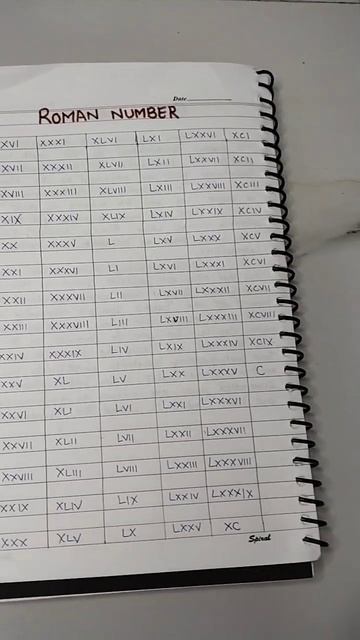 Date
ROMAN NUMBER
XVI XXXI XLVI LXI LXXVI XCI
XVII XXXII XLVII LXII LXXVII XCII
XVIII XXXIII XLVIII LXIII LXXVIII XCIII
XIX XXXIV XLIX LXIV LXXIX XCIV
XX XXXV L LXV LXXX XCV
XXI XXXVI LI LXVI LXXXI XCVI
XXII XXXVII LII LXVII LXXXII XCVII
XXIII XXXVIII LIII LXVIII LXXXIII XCVIII
XXIV XXXIX LIV LXIX LXXXIV XCIX
XXV XL LV LXX LXXXV C
XXVI XLI LVI LXXI LXXXVI
XXVII XLII LVII LXXII LXXXVII
XXVIII XLIII LVIII LXXIII LXXXVIII
XXIX XLIV LIX LXXIV LXXXIX
XXX XLV LX LXXV XC
Spiral